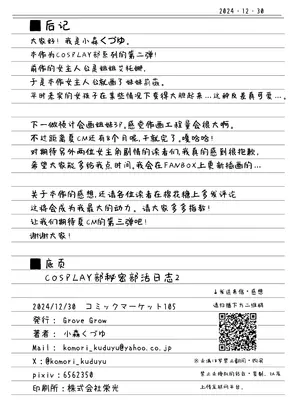 2024・12・30
■后记
大家好！我是小森くづゆ。
本作为COSPLAY部系列的第二弹！
前作的女主人公是姐姐艾托娜，
于是本作女主人公就画了妹妹莉莉。
平时老实的女孩子在某些情况下变得大胆起来…这种反差真可爱…。
下一作预计会画姐妹3P，感觉作画工程量会很大啊。
不过距离夏CM还有8个月呢，干就完了。嘎哈哈！
对期待另外两位女主角剧情的读者们，我真的感到很抱歉，
希望大家能多给我点时间。我会在FANBOX上更新插画的…
关于本作的感想，还请各位读者在棉花糖上多发评论
这将会成为我最大的动力。请大家多多指教！
让我们期待夏CM的第三弹吧！
谢谢大家！
■底页
COSPLAY部秘密部活日志2
2024/12/30 コミックマーケット105
発行： Grove Grow
著者： 小森くづゆ
Mail： komori_kuduyu@yahoo.co.jp
X：@komori_kuduyu
pixiv：6562350
印刷所：株式会社栄光
↓发送来信・感想
请扫描下方二维码